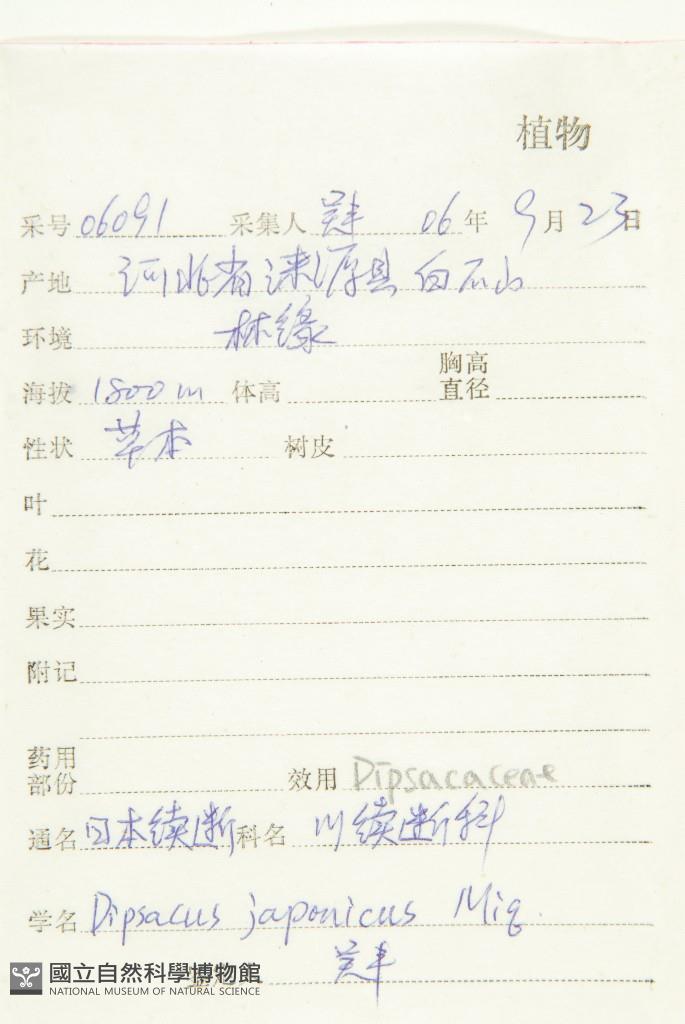 植物
采号 06091 采集人 吴丰 06年 9月 23日
产地 河北省涞源县白石山
环境 林缘
海拔 1800m 体高 胸高直径
性状 草本 树皮
叶
花
果实
附记
药用部份 效用 Dipsacaceae
通名 日本续断 科名 川续断科
学名 Dipsacus japonicus Miq.
吴丰
國立自然科學博物館
NATIONAL MUSEUM OF NATURAL SCIENCE